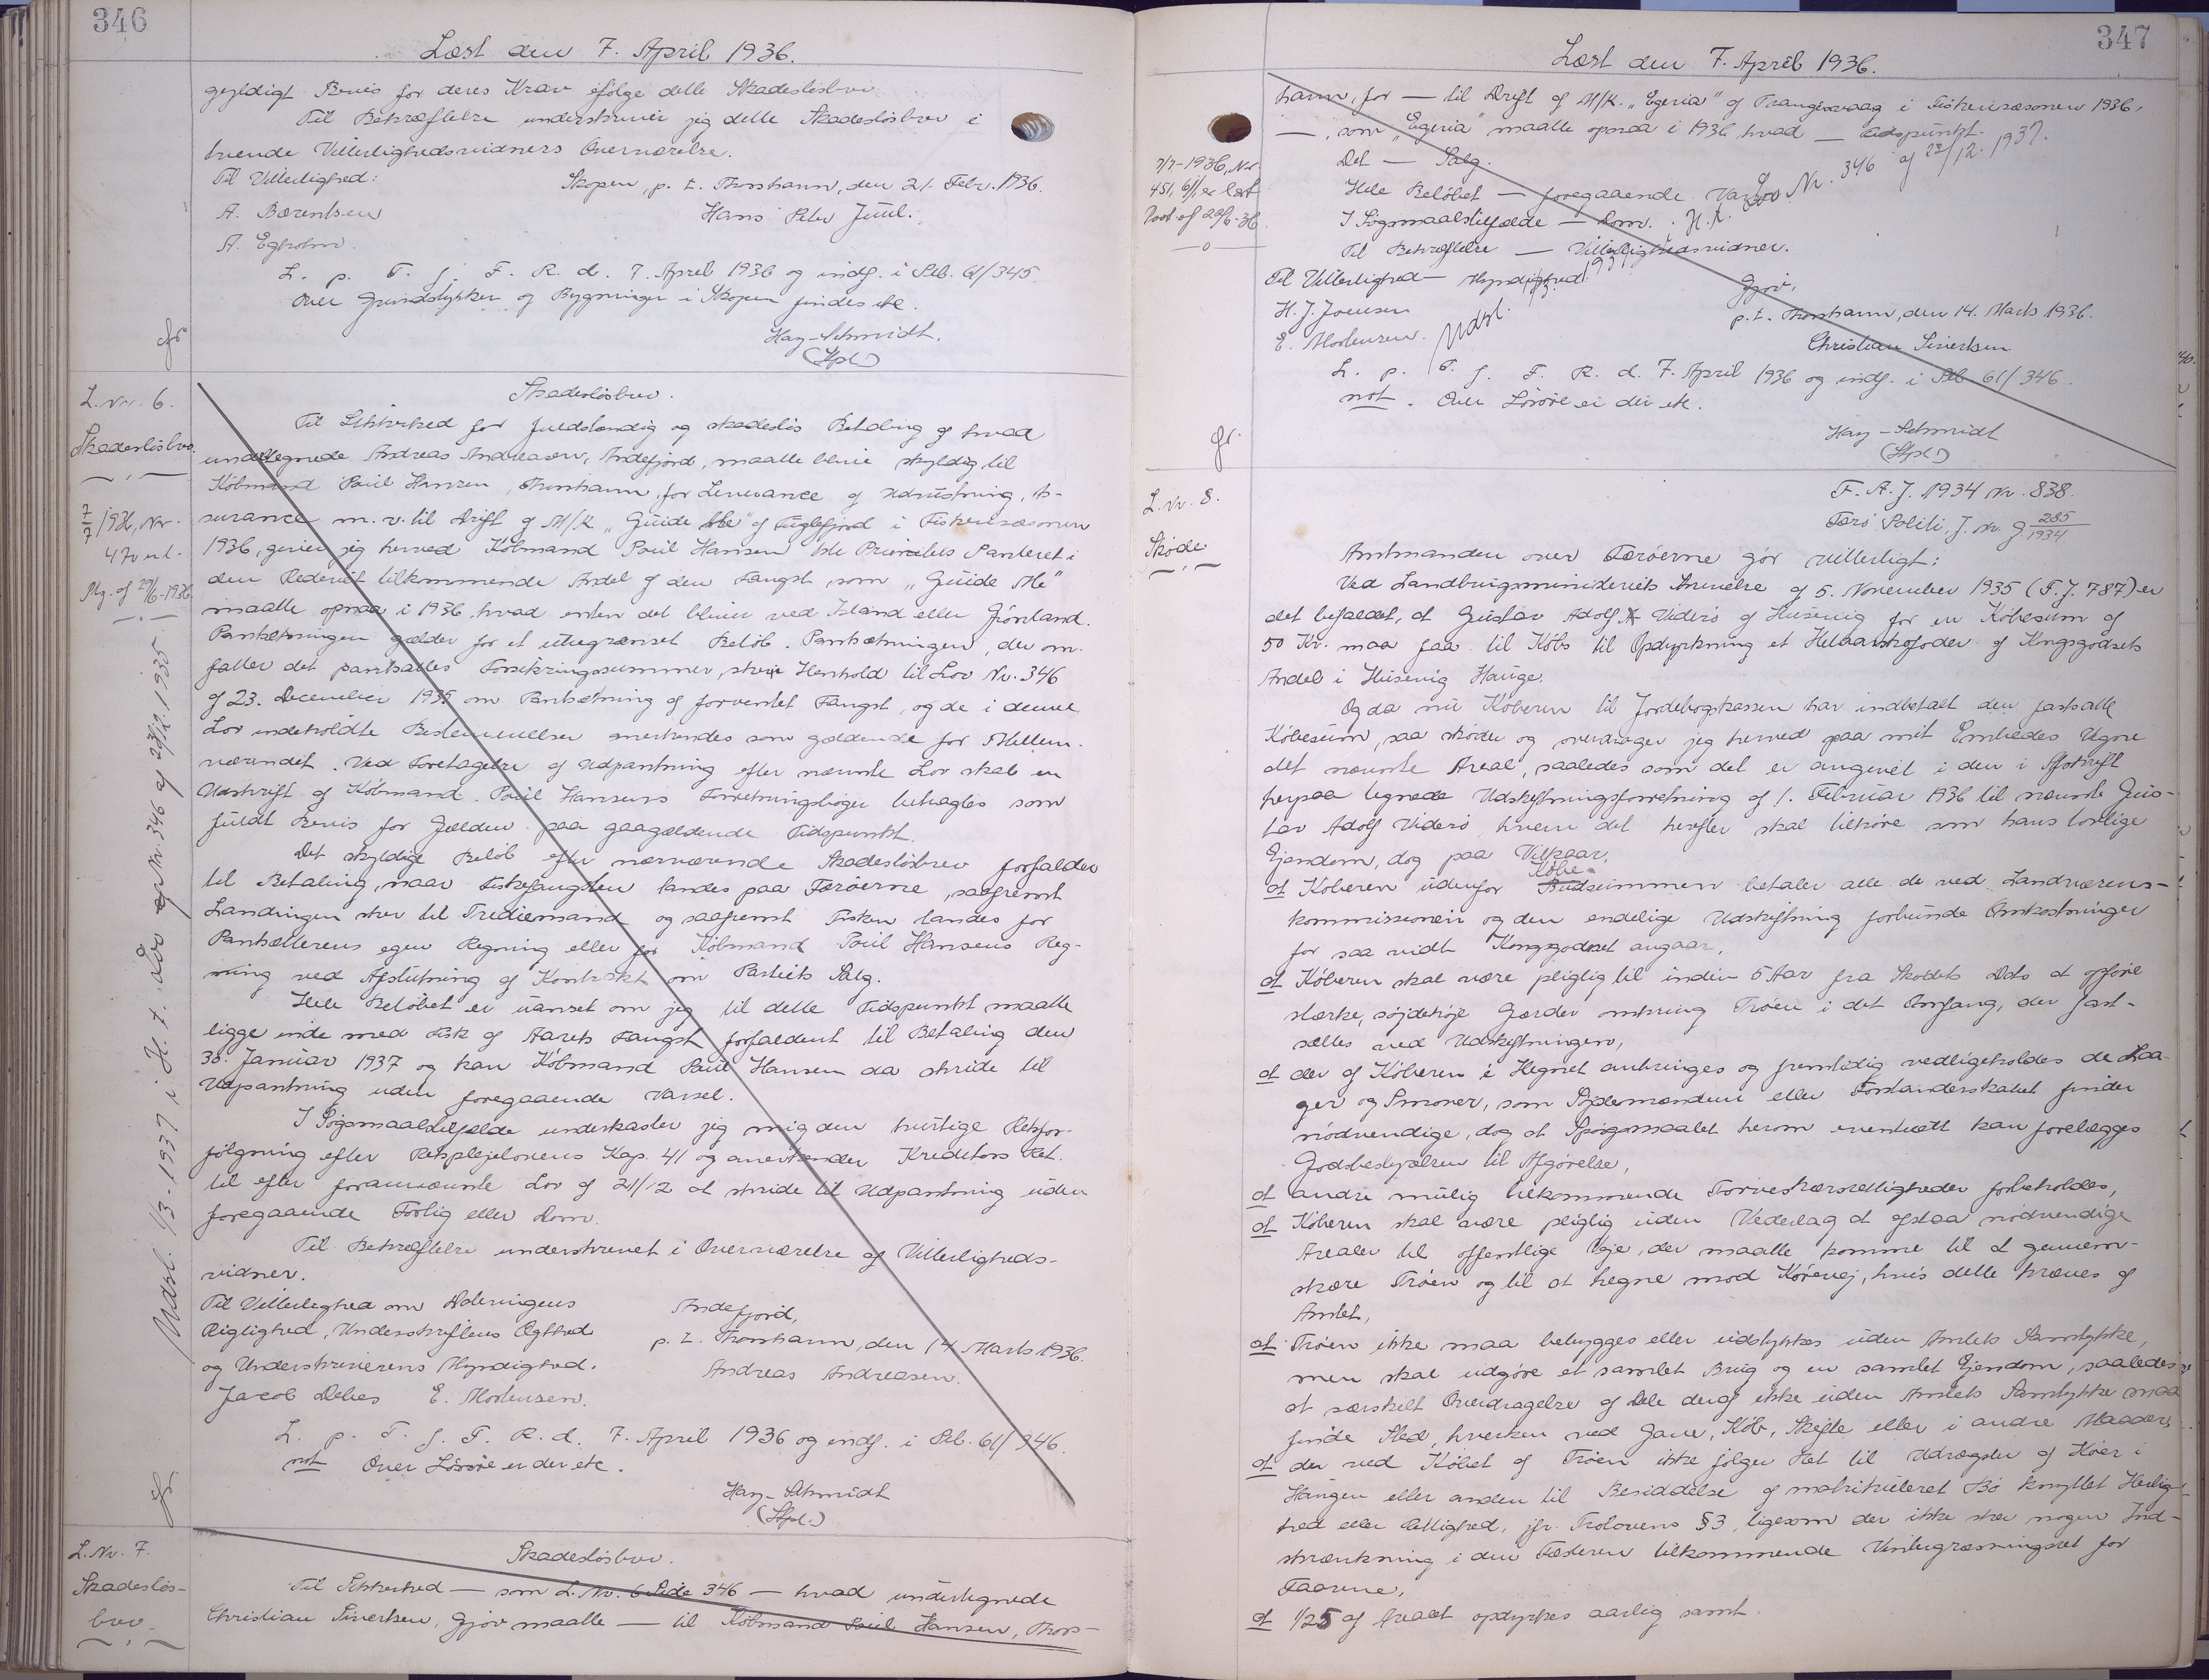 346
Læst den 7. April 1936.
gyldigt Bevis for deres Krav ifølge dette Skadesløsbrev.
Til Bekræftelse underskriver jeg dette Skadesløsbrev i
tvende Vitterlighedsvidners Overværelse.
Til Vitterlighed: Skopen, p. t. Thorshavn, den 21. Febr. 1936.
A. Bærentsen Hans Peter Juul.
A. Egholm.
L. p. T. f. F. R. d. 7. April 1936 og indf. i Ptb. 61/345.
Over Grundstykker og Bygninger i Skopen findes etc.
Hay-Schmidt.
(Stpl.)
gr.
L. Nr. 6.
Skadesløsbrev
7/7 1936, Nr.
470 erl.
Plg. af 29/6-1936
Skadesløsbrev.
Til Sikkerhed for fuldstændig og skadesløs Betaling af hvad
undertegnede Andreas Andreasen, Andefjord, maatte blive skyldig til
Købmand Poul Hansen, Thorshavn, for Leverance af Udrustning, As-
surance m. v. til Drift af M/K "Guide Me" af Fuglefjord i Fiskerisæsonen
1936, giver jeg herved Købmand Poul Hansen 1ste Prioritets Panteret i
den Rederiet tilkommende Andel af den Fangst som "Guide Me"
maatte opnaa i 1936 hvad enten det bliver ved Island eller Grønland.
Pantsætningen gælder for et ubegrænset Beløb. Pantsætningen, der om-
fatter det pantsattes Forsikringssummer, sker i Henhold til Lov Nr. 346
af 23. December 1935 om Pantsætning af forventet Fangst, og de i denne
Lov indeholdte Bestemmelser anerkendes som gældende for Mellem-
værendet. Ved Foretagelse af Udpantning efter nævnte Lov skal en
Udskrift af Købmand Poul Hansens Forretningsbøger betragtes som
fuldt Bevis for Gælden paa gaagældende Tidspunkt.
Det skyldige Beløb efter nærværende Skadesløsbrev forfalder
til Betaling, naar Fiskefangsten landes paa Færøerne, saafremt
Landingen sker til Trediemand og saafremt Fisken landes for
Pantsætterens egen Regning eller for Købmand Poul Hansens Reg-
ning ved Afslutning af Kontrakt om Partiets Salg.
Hele Beløbet er uanset om jeg til dette Tidspunkt maatte
ligge inde med Fisk af Aarets Fangst forfaldent til Betaling den
30. Januar 1937 og kan Købmand Poul Hansen da skride til
Udpantning uden foregaaende Varsel.
I Søgsmaalstilfælde underkaster jeg mig den hurtige Retsfor-
følgning efter Retsplejelovens Kap. 41 og anerkender Kreditors Ret
til efter forannævnte Lov af 21/12 at skride til Udpantning uden
foregaaende Forlig eller Dom.
Til Bekræftelse underskrevet i Overværelse af Vitterligheds-
vidner.
Til Vitterlighed om Dateringens Andefjord,
Rigtighed, Underskriftens Ægthed p. t. Thorshavn, den 14 Marts 1936.
og Underskriverens Myndighed. Andreas Andreasen.
Jacob Debes E. Mortensen.
L. p. T. f. F. R. d. 7. April 1936 og indf. i Ptb. 61/346.
not Over Løsøre er der etc.
Hay-Schmidt
(Stpl.)
gr.
Udsl. 1/3-1937 i H. t. Lov Nr. 346 af 23/12 1935
L. Nr. 7.
Skadesløs-
brev.
Skadesløsbrev.
Til Sikkerhed — som L. Nr. 6 Side 346 — hvad undertegnede
Christian Sivertsen, Gjov maatte — til Købmand Poul Hansen, Thors-
347
Læst den 7. April 1936.
havn, for — til Drift af M/K. "Egeria" af Trangisvaag i Fiskerisæsonen 1936,
—, som "Egeria" maatte opnaa i 1936 hvad — Tidspunkt.
Det — Salg.
Hele Beløbet — foregaaende Varsel.
I Søgsmaalstilfælde — Dom.
Til Bekræftelse — Vitterlighedsvidner.
Til Vitterlighed — Myndighed: Gjov,
H. J. Joensen p. t. Thorshavn, den 14. Marts 1936.
E. Mortensen. Christian Sivertsen
L. p. T. f. F. R. d. 7. April 1936 og indf. i Ptb 61/346.
not. Over Løsøre er der etc.
Hay-Schmidt
(Stpl.)
Udsl. 1/3 1937 H. t. Lov Nr. 346 af 23/12. 1937.
7/7-1936, Nr.
451, 6/1 er læst
Vort af 22/6-36.
—o—
gr.
L. Nr. 8.
Skøde
F. A. J. 1934 Nr. 838.
Færø Politi, J. Nr. G. 285/1934
Amtmanden over Færøerne gør vitterligt:
Ved Landbrugsministeriets Skrivelse af 5. November 1935 (F. J. 787) er
det befalet, at Gustav Adolf Viderø af Husevig for en Købesum af
50 Kr. maa faa til Købs til Opdyrkning et Helaarskofoder af Kongsgodsets
Andel i Husevig Hauge.
Og da nu Køberen til Jordebogskassen har indbetalt den fastsatte
Købesum, saa skøder og overdrager jeg herved paa mit Embedes Vegne
det nævnte Areal, saaledes som det er angivet i den i Afskrift
herpaa tegnede Udskiftningsforretning af 1. Februar 1936 til nævnte Gus-
tav Adolf Viderø, hvem det herefter skal tilhøre som hans lovlige
Ejendom, dog paa Vilkaar,
at Køberen udenfor Budsummen Købe- betaler alle de ved Landvæsens-
kommissionen og den endelige Udskiftning forbundne Omkostninger
for saa vidt Kongsgodset angaar,
at Køberen skal være pligtig til inden 5 Aar fra Skødets Dato at opføre
stærke, søjdehøje Gærder omkring Trøen i det Omfang, der fast-
sættes ved Udskiftningen,
at der af Køberen i Hegnet anbringes og fremtidig vedligeholdes de Laa-
ger og Smover, som Søjdemændene eller Forstanderskabet finder
nødvendige, dog at Spørgsmaalet herom eventuelt kan forelægges
Godsbestyrelsen til Afgørelse,
at andre mulig tilkommende Torveskærsrettigheder forbeholdes,
at Køberen skal være pligtig uden Vederlag at afstaa nødvendige
Arealer til offentlige Veje, der maatte komme til at gennem-
skære Trøen og til at hegne mod Kørevej, hvis dette kræves af
Amtet,
at Trøen ikke maa bebygges eller udstykkes uden Amtets Samtykke,
men skal udgøre et samlet Brug og en samlet Ejendom, saaledes
at særskilt Overdragelse af Dele deraf ikke uden Amtets Samtykke maa
finde Sted, hverken ved Gave, Køb, Skifte eller i andre Maader,
at der ved Købet af Trøen ikke følger Ret til Udrægster af Køer i
Haugen eller anden til Besiddelse af matrikuleret Bø knyttet Herlig-
hed eller Rettighed, jfr. Trolovens §3, ligesom der ikke sker nogen Ind-
skrænkning i den Fæsteren tilkommende Vintergræsningsret for
Faarene,
at 1/25 af Arealet opdyrkes aarlig samt